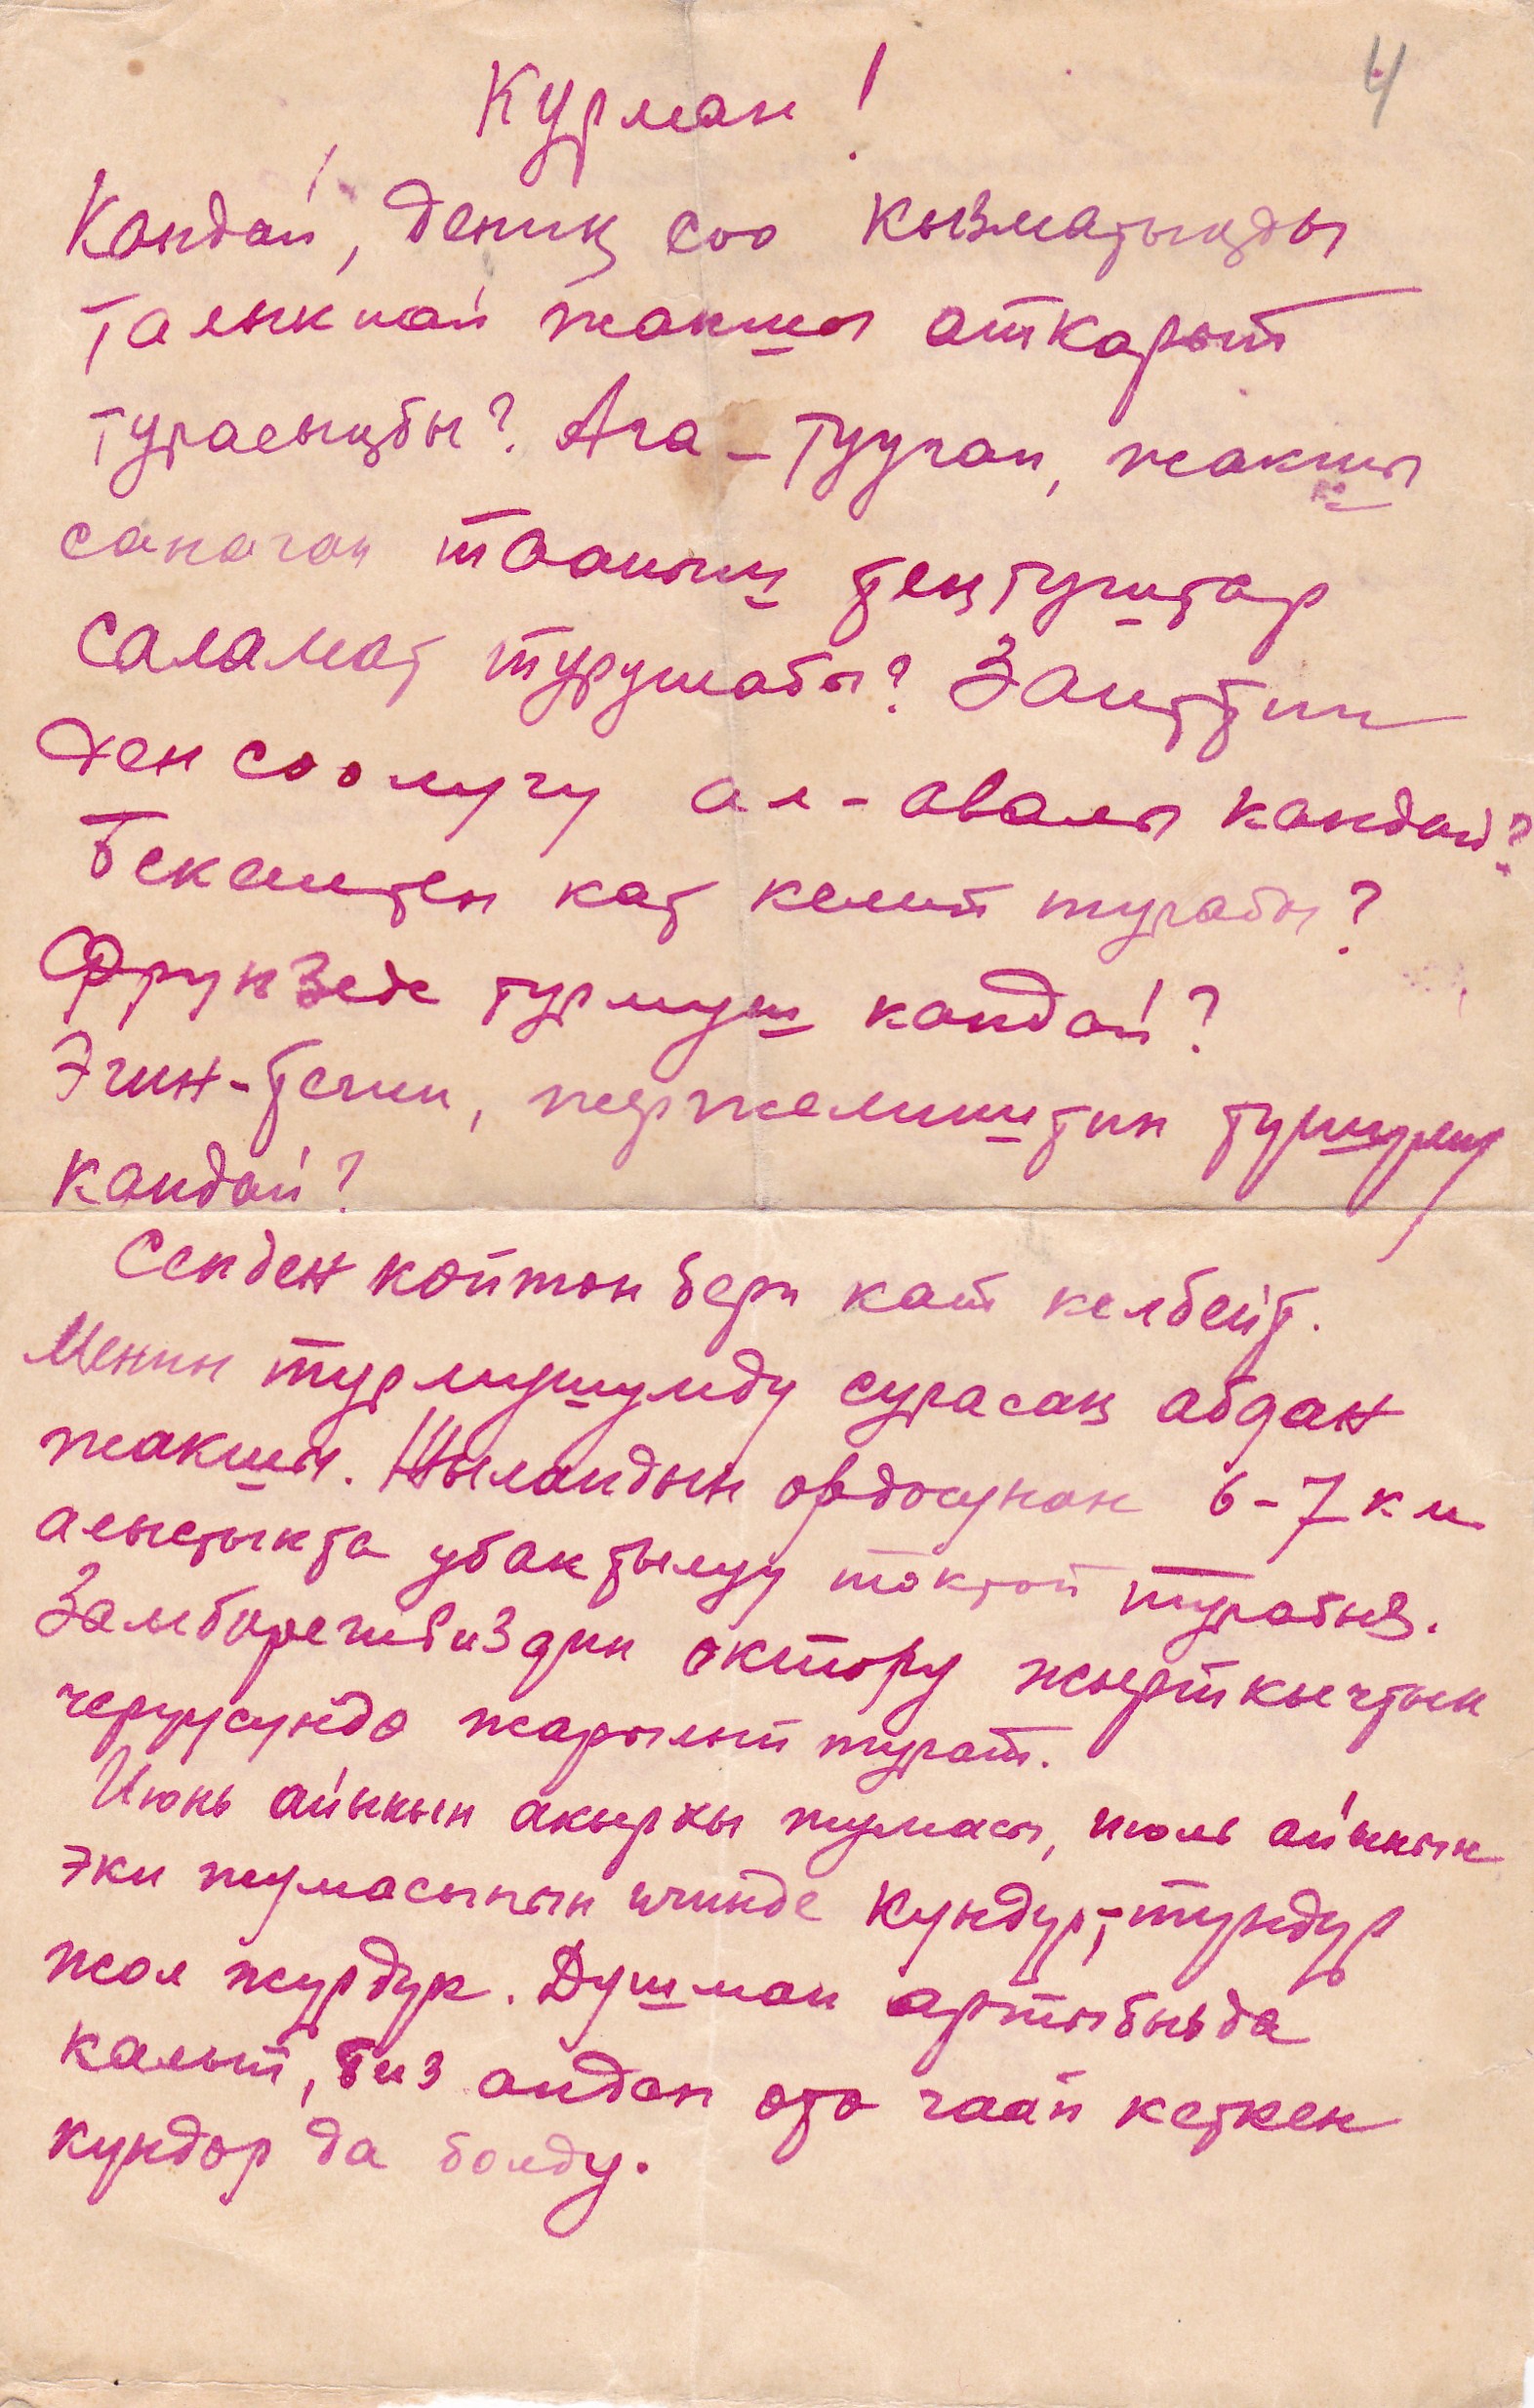 4
Курман!
Кандай, дениң соо кызматыңды
талыкпай жакшы аткарып
турасыңбы? Ага-тууган, жакшы
санаган тааныш теңтуштар
саламат турушабы? Заиттин
ден соолугу ал-авалы кандай?
Бекештен кат келип турабы?
Фрунзеде турмуш кандай?
Эгин-тегин, жержемиштин түшүмү
кандай?
Сенден көптөн бери кат келбейт.
Менин турмушумду сурасаң абдан
жакшы. Жыландын ордосунан 6-7 км
алыстыкта убактылуу токтоп турабыз.
Замбирегибиздин октору жырткычтын
черүүсүндө жарылып турат.
Июнь айынын акыркы жумасы, июль айынын
эки жумасынын ичинде күндүр, түндүр
жол жүрдүк. Душман артыбызда
калып, биз андан өтө чаап кеткен
күндөр да болду.